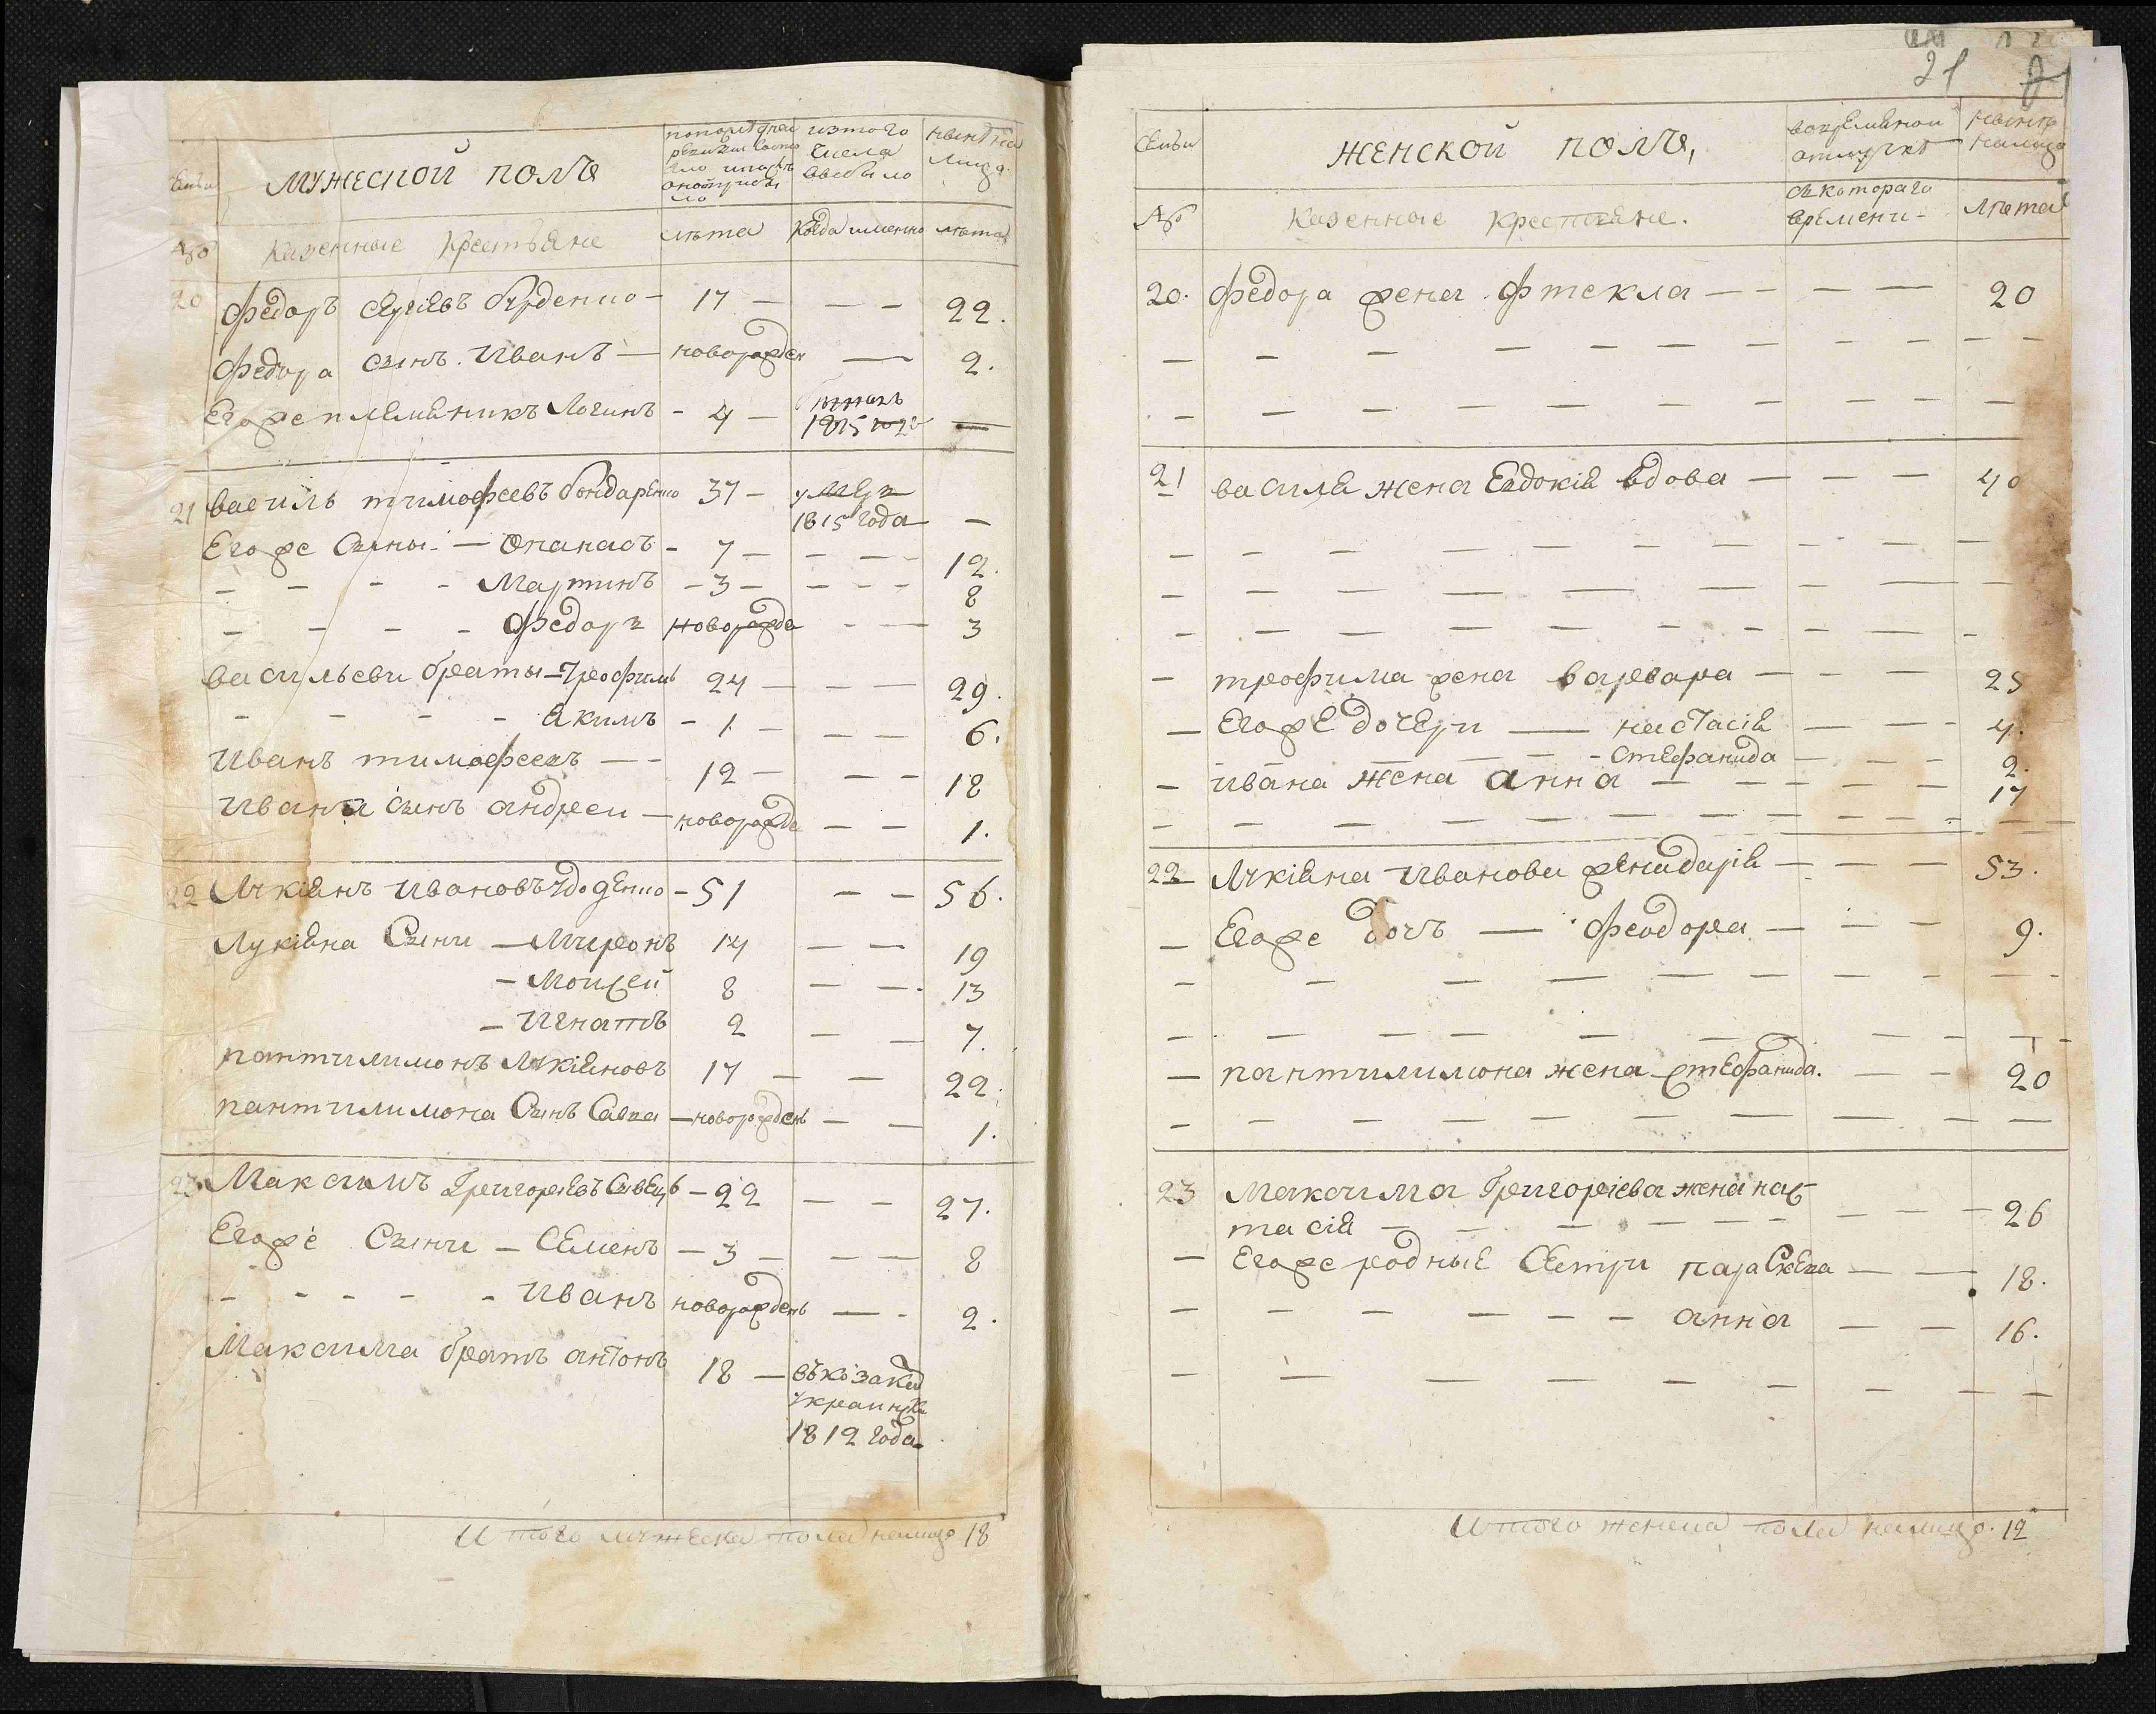 Семьи
МУЖЕСКОЙ ПОЛЪ
изтого
числа
выбыло
ныне на
лицо
№
Казенные Крестьяне
лѣта
Когда именно
лѣта
20 Федоръ Сергѣевъ - 17 - - - 22.
Федора сынъ Иванъ - новорожден - 2.
Егоже племяникъ Логинъ - 4 -
1815 году -
21 Василь тимофеевъ бондаренко 37 - умеръ
1815 года -
Егоже Сыны - Опанасъ - 7 - - - 12.
- - - - Мартинъ - 3 - - - - 8
- - - - Федоръ новорожде - - 3
васильеви браты - Трофимъ 24 - - - 29.
- - - - Якимъ - 1 - - - 6.
Иванъ тимофеевъ - - 12 - - - 18
Ивана сынъ андреи - новорожде - - 1.
22 Лукіянъ Ивановъ - 51 - - 56.
Лукіяна Сыни - Миронъ 14 - - 19
- Мойсей 8 - - 13
- Игнатъ 2 - - 7.
пантилимонъ Лукіяновъ 17 - - 22.
пантилимона Сынъ Савка - новорожденъ - - 1.
23 Максимъ Григорьевъ Швецъ - 22 - - 27.
Егоже Сыни - Семенъ - 3 - - - 8
- - - - - Иванъ новорожденъ - - 2.
Максима братъ антонъ 18 - въ козаки
украински
1812 года
Итого мужеска пола налицо 18
21
Семьи
ЖЕНСКОЙ ПОЛЪ,
вовременной
отлучкѣ
ныне
налицо
№
Казенные Крестьяне.
съ котораго
времени -
лѣта
20. Федора жена Фтекла - - - - 20
21 василя жена Евдокія вдова - - - 40
- трофима жена варвара - - - 25
- Егоже дочери - настасія - - - 4.
- - - - Стефанида - - - 2.
- ивана жена анна - - - - - 17
22 Лукіяна Иванова жена дарія - - - 53.
- Егоже дочь - Феодора - - - 9.
- пантилимона жена Стефанида. - - 20
23 Максима Григоріева жена нас-
тасія - - - - - - - - - 26
- Егоже родные Сестри параскева - - 18.
- - - - - - анна - - 16.
Итого женска пола налицо. 12